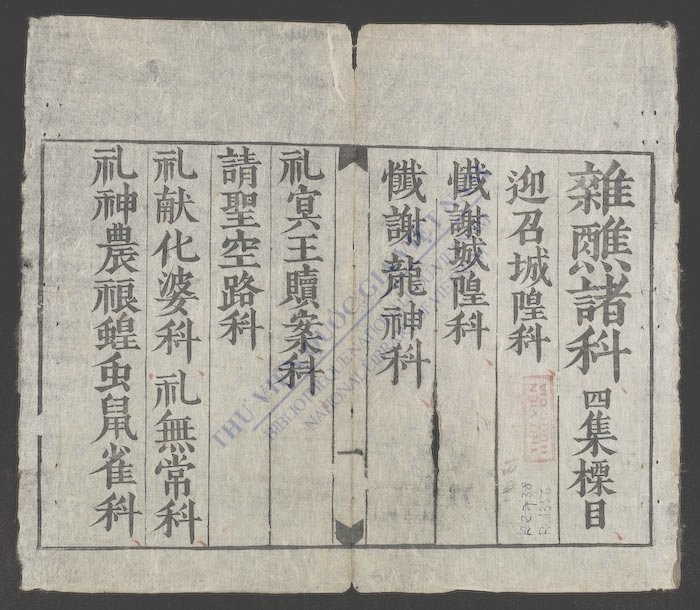 雜醮諸科 四集標目
迎召城隍科
懴謝城隍科
懴謝龍神科
一
礼㝠王贖案科
請聖空路科
礼献化婆科 礼無常科
礼神農䘙蝗虫鼠雀科
THƯ VIỆN QUỐC GIA VIỆT NAM
R.1356